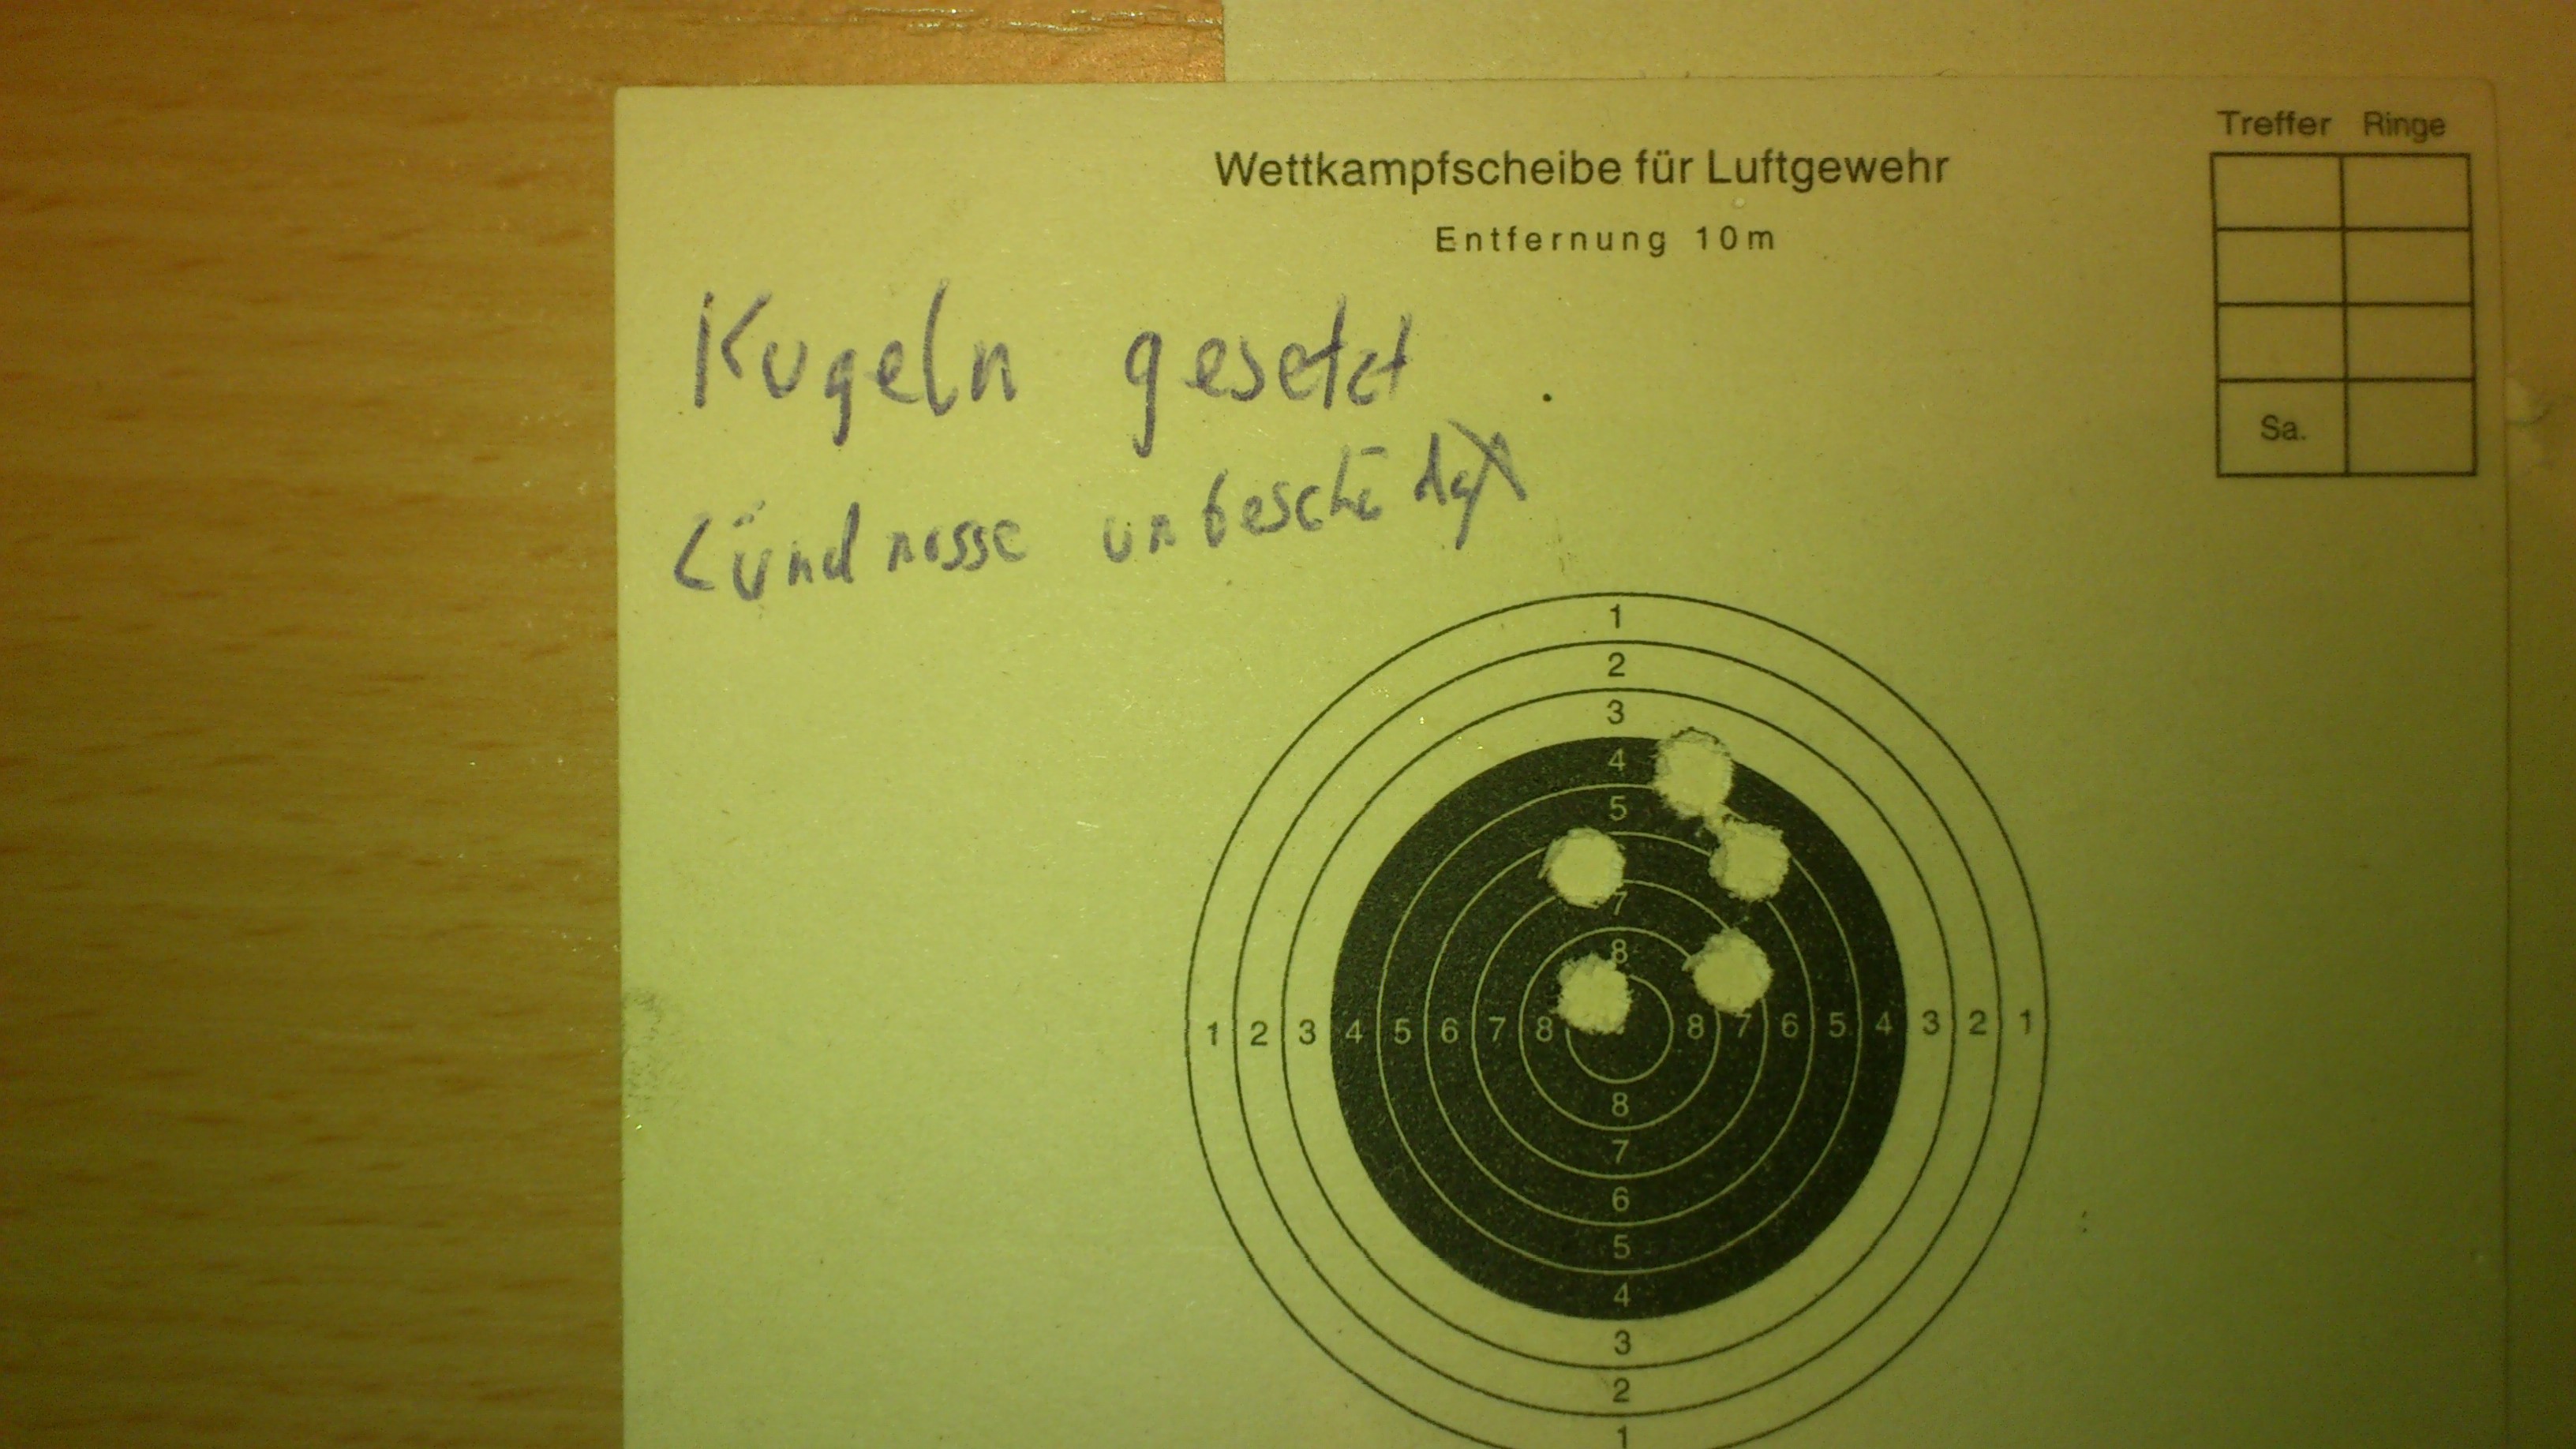 Treffer Ringe
Wettkampfscheibe für Luftgewehr
Entfernung 10m
Sa.
Kugeln gesetzt
Zündmasse unbeschädigt
1
2
3
4
5
7
8
1 2 3 4 5 6 7 8 8 7 6 5 4 3 2 1
8
7
6
5
4
3
2
1